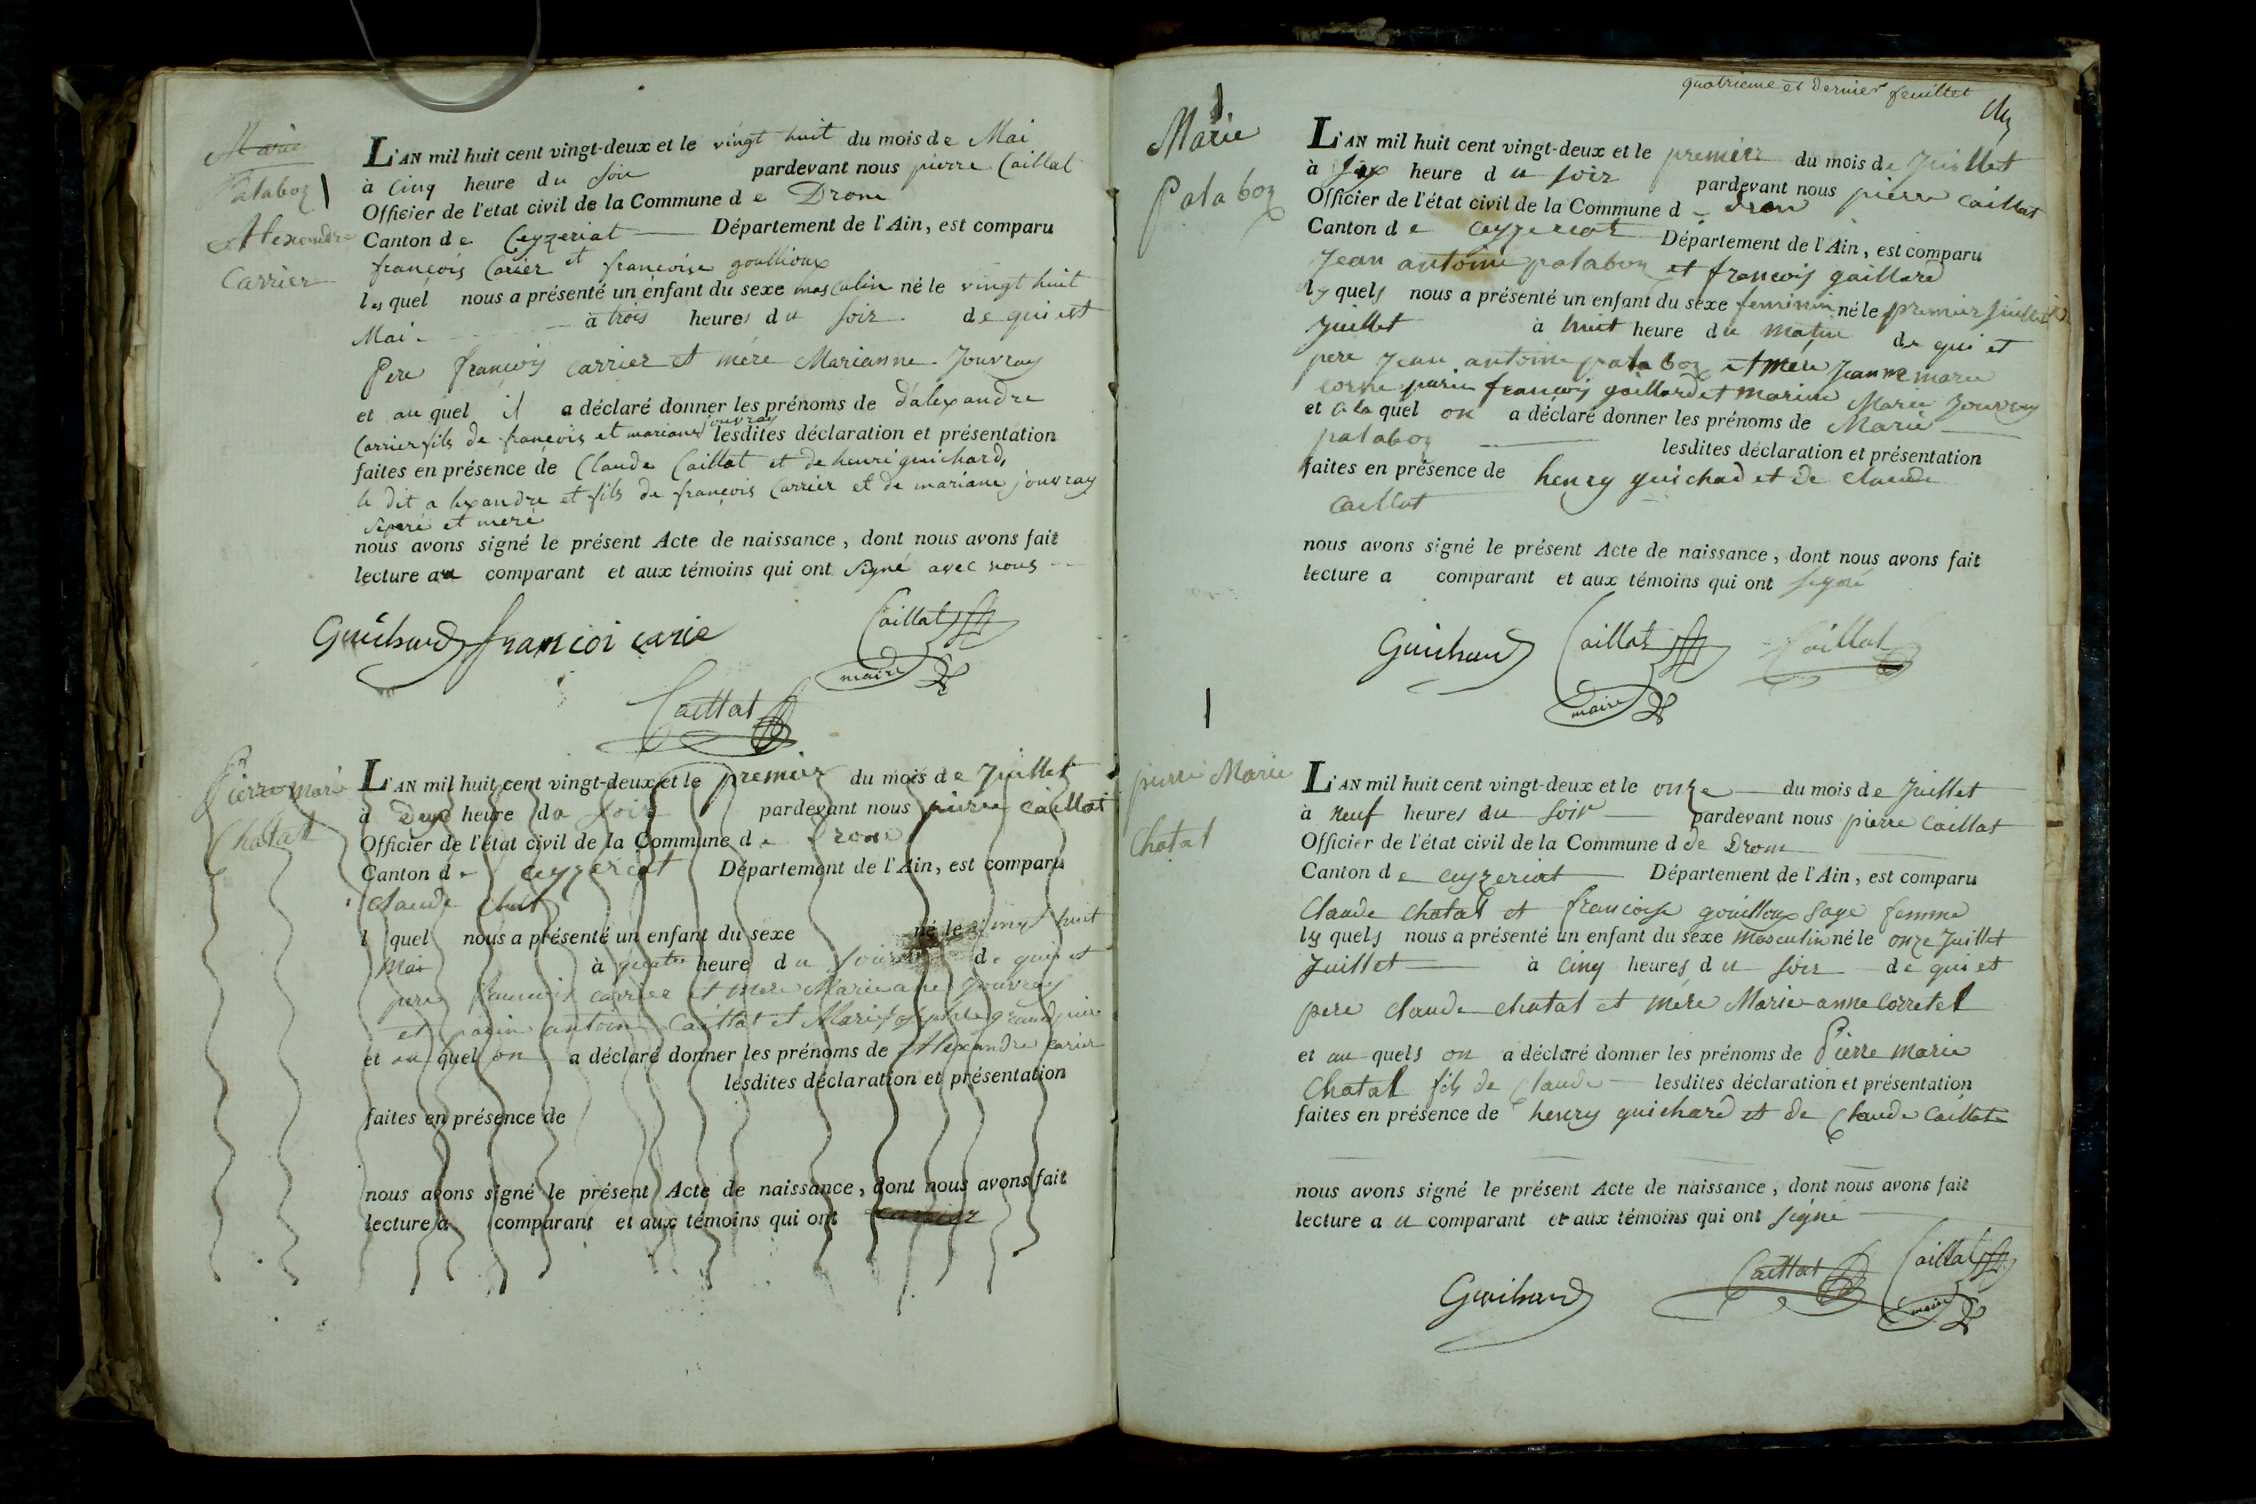 Marie
Palaboz
Alexandre
Carrier
L'AN mil huit cent vingt-deux et le vingt huit du mois de Mai
à Cinq heure du soir pardevant nous pierre Caillat
Officier de l'état civil de la Commune de Drom
Canton de Ceyzeriat Département de l'Ain, est comparu
françois Carier et francoise goullioux
les quel nous a présenté un enfant du sexe masculin né le vingt huit
Mai à trois heures du soir de qui est
Pere françois carrier et mère Marianne Jouvray
et au quel il a déclaré donner les prénoms de d'alexandre
Carrier fils de francois et mariane jouvray lesdites déclaration et présentation
faites en présence de Claude Caillat et de henri guichard,
le dit alexandre et fils de françois Carrier et de mariane jouvray
et meré
nous avons signé le présent Acte de naissance, dont nous avons fait
lecture au comparant et aux témoins qui ont signé avec nous
Guichard francoi carie Caillat
maire
Caillat
Pierre marie
Chatal
L'AN mil huit cent vingt-deux et le premier du mois de Juillet
à deux heure du soir pardevant nous pierre caillat
Officier de l'état civil de la Commune de Drom
Canton de ceyzeriat Département de l'Ain, est comparu
claude
l quel nous a présenté un enfant du sexe né le vingt huit
Mai à quatre heure du soir de qui et
pere francois carrier et mere Marieane Jouvray
et parin antoine Caillat et Marie
et au quel on a déclaré donner les prénoms de Alexandre carier
lesdites déclaration et présentation
faites en présence de
nous avons signé le présent Acte de naissance, dont nous avons fait
lecture a comparant et aux témoins qui ont
quatrieme et dernier feuillet
Marie
Palaboz
L'AN mil huit cent vingt-deux et le premier du mois de Juillet
à six heure du soir pardevant nous pierre caillat
Officier de l'état civil de la Commune d drom
Canton de ceyzeriat Département de l'Ain, est comparu
Jean antoine palaboz et françois gaillard
ly quels nous a présenté un enfant du sexe feminin né le premier juillet
Juillet à huit heure du matin de qui et
pere Jean antoine palaboz et mere Jeanne marie
corne parin françois gaillard et marine Marie Jouvray
et a la quel on a déclaré donner les prénoms de Marie
palaboz lesdites déclaration et présentation
faites en présence de henry guichad et de claude
caillat
nous avons signé le présent Acte de naissance, dont nous avons fait
lecture a comparant et aux témoins qui ont signé
Guichard Caillat Caillat
maire
pierre Marie
Chatal
L'AN mil huit cent vingt-deux et le onze du mois de Juillet
à neuf heures du soir pardevant nous pierre caillat
Officier de l'état civil de la Commune d de Drom
Canton de ceyzeriat Département de l'Ain, est comparu
Claude chatal et francoise gouilloux sage femme
ly quels nous a présenté un enfant du sexe masculin né le onze Juillet
Juillet à cinq heures du soir de qui et
pere claude chatal et mére Marie-anne Corretel
et au quels on a déclaré donner les prénoms de Pierre marie
Chatal fils de Claude lesdites déclaration et présentation
faites en présence de henry guichard et de Claude Caillat
nous avons signé le présent Acte de naissance, dont nous avons fait
lecture a u comparant et aux témoins qui ont signé
Guichard Caillat Caillat
maire